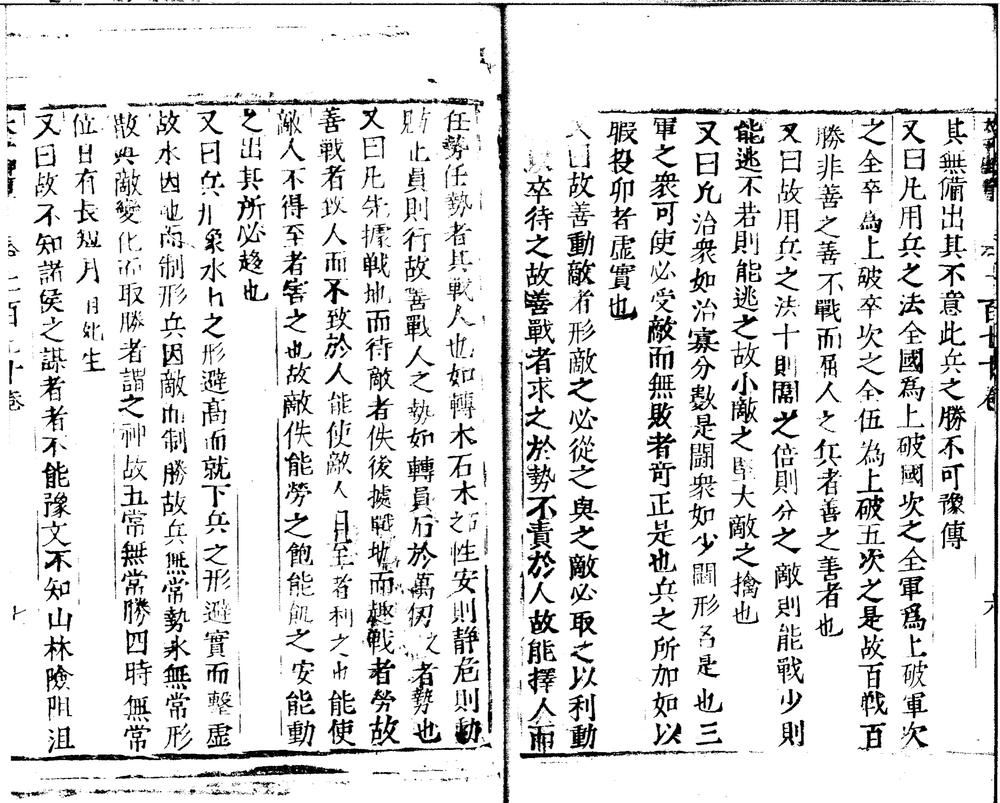 百七十卷
六
其無備出其不意此兵之勝不可豫傳
又曰凡用兵之法全國為上破國次之全軍爲上破軍次
之全卒為上破卒次之全伍為上破五次之是故百戰百
勝非善之善不戰而屈人之兵者善之善者也
又曰故用兵之法十則圍之倍則分之敵則能戰少則
能逃不若則能逃之故小敵之堅大敵之擒也
又曰凡治衆如治寡分数是鬪衆如少鬪形名是也三
軍之衆可使必受敵而無敗者奇正是也兵之所加如以
碬投卵者虛實也
曰故善動敵者形敵之必從之與之敵必取之以利動
卒待之故善戰者求之於勢不責於人故能擇人而
任勢任勢者其戰人也如轉木石木之性安則静危則動
止員則行故善戰人之勢如轉員石於萬仞之者勢也
又曰凡先據戰地而待敵者佚後據戰地而趣戰者勞故
善戰者致人而不致於人能使敵人自至者利之也能使
敵人不得至者害之也故敵佚能勞之飽能飢之安能動
之出其所必趍也
又曰兵形象水水之形避高而就下兵之形避實而擊虛
故水因地而制形兵因敵而制勝故兵無常勢水無常形
敵變化而取勝者謂之神故五常無常勝四時無常
位日有長短月有死生
又曰故不知諸侯之謀者者不能豫文不知山林險阻沮
七